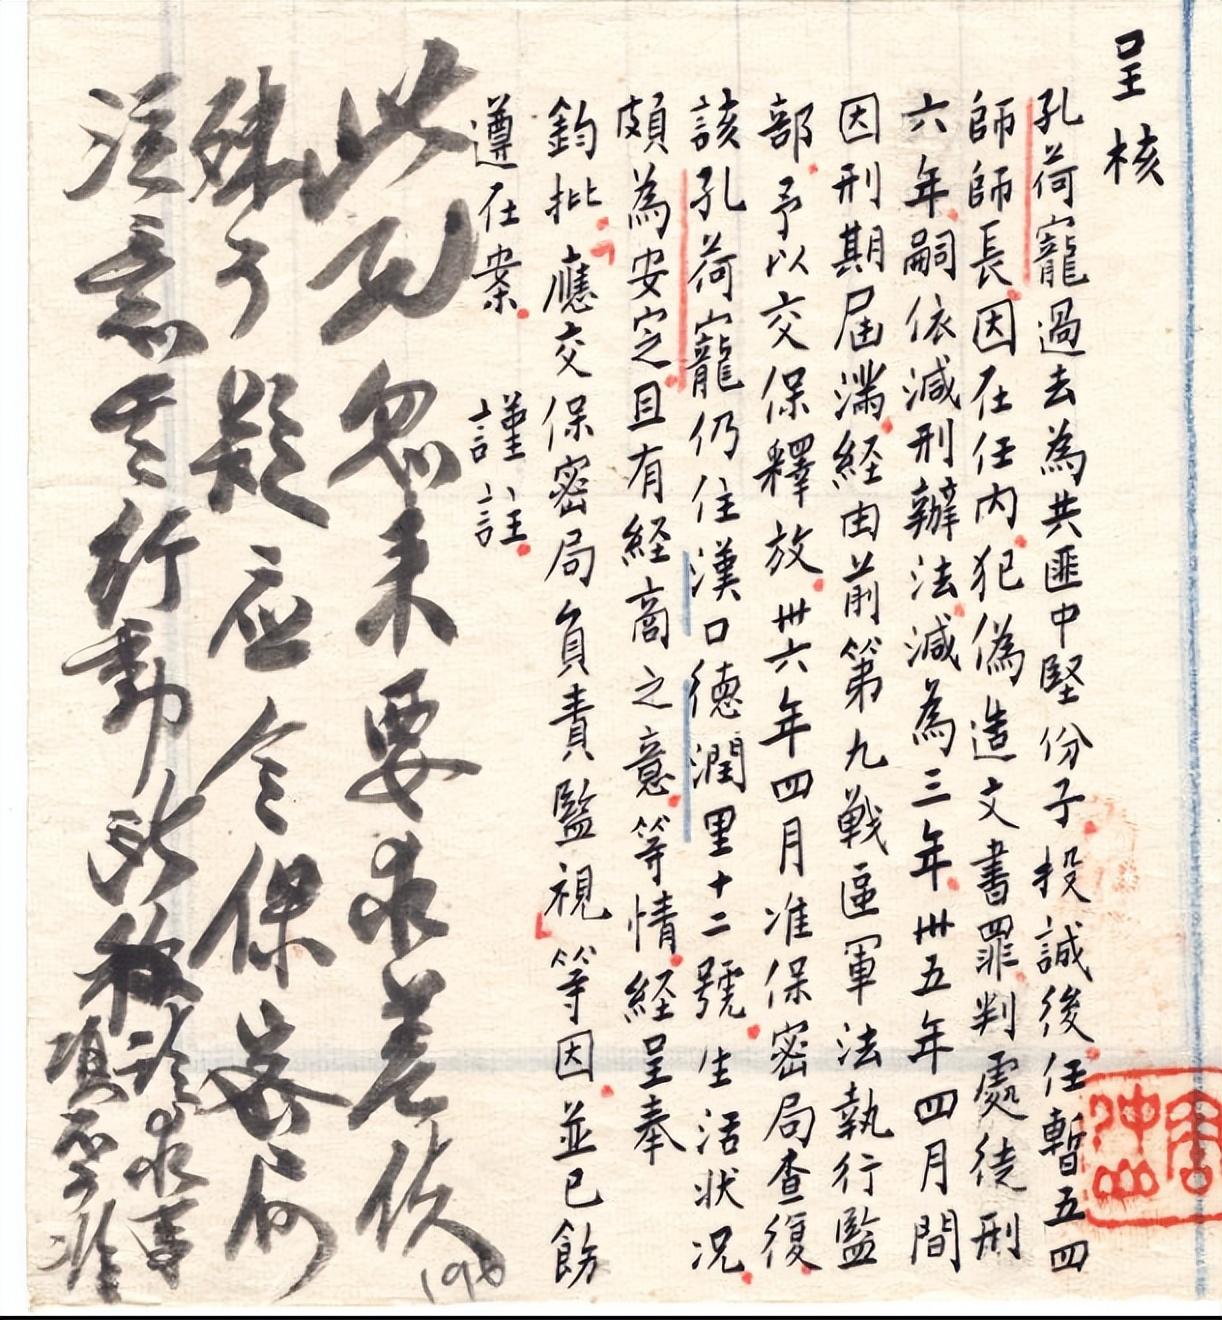 呈核
孔荷寵過去為共匪中堅份子.投誠後.任暫五四
師師長.因在任內.犯偽造文書罪.判處徒刑
六年.嗣依減刑辦法.減為三年.卅五年四月間
因刑期屆滿.経由前第九戦區軍法執行監
部.予以交保釋放.卅六年四月准保密局查復.
該孔荷寵仍住漢口德潤里十二號.生活狀况.
頗為安定.且有経商之意.等情.経呈奉
鈞批.「應交保密局負責監視」等因.並已飭
遵在案.謹註.
此死忽来要求差使
殊可疑应令保密局
注意其行動
所稱請求事項不准